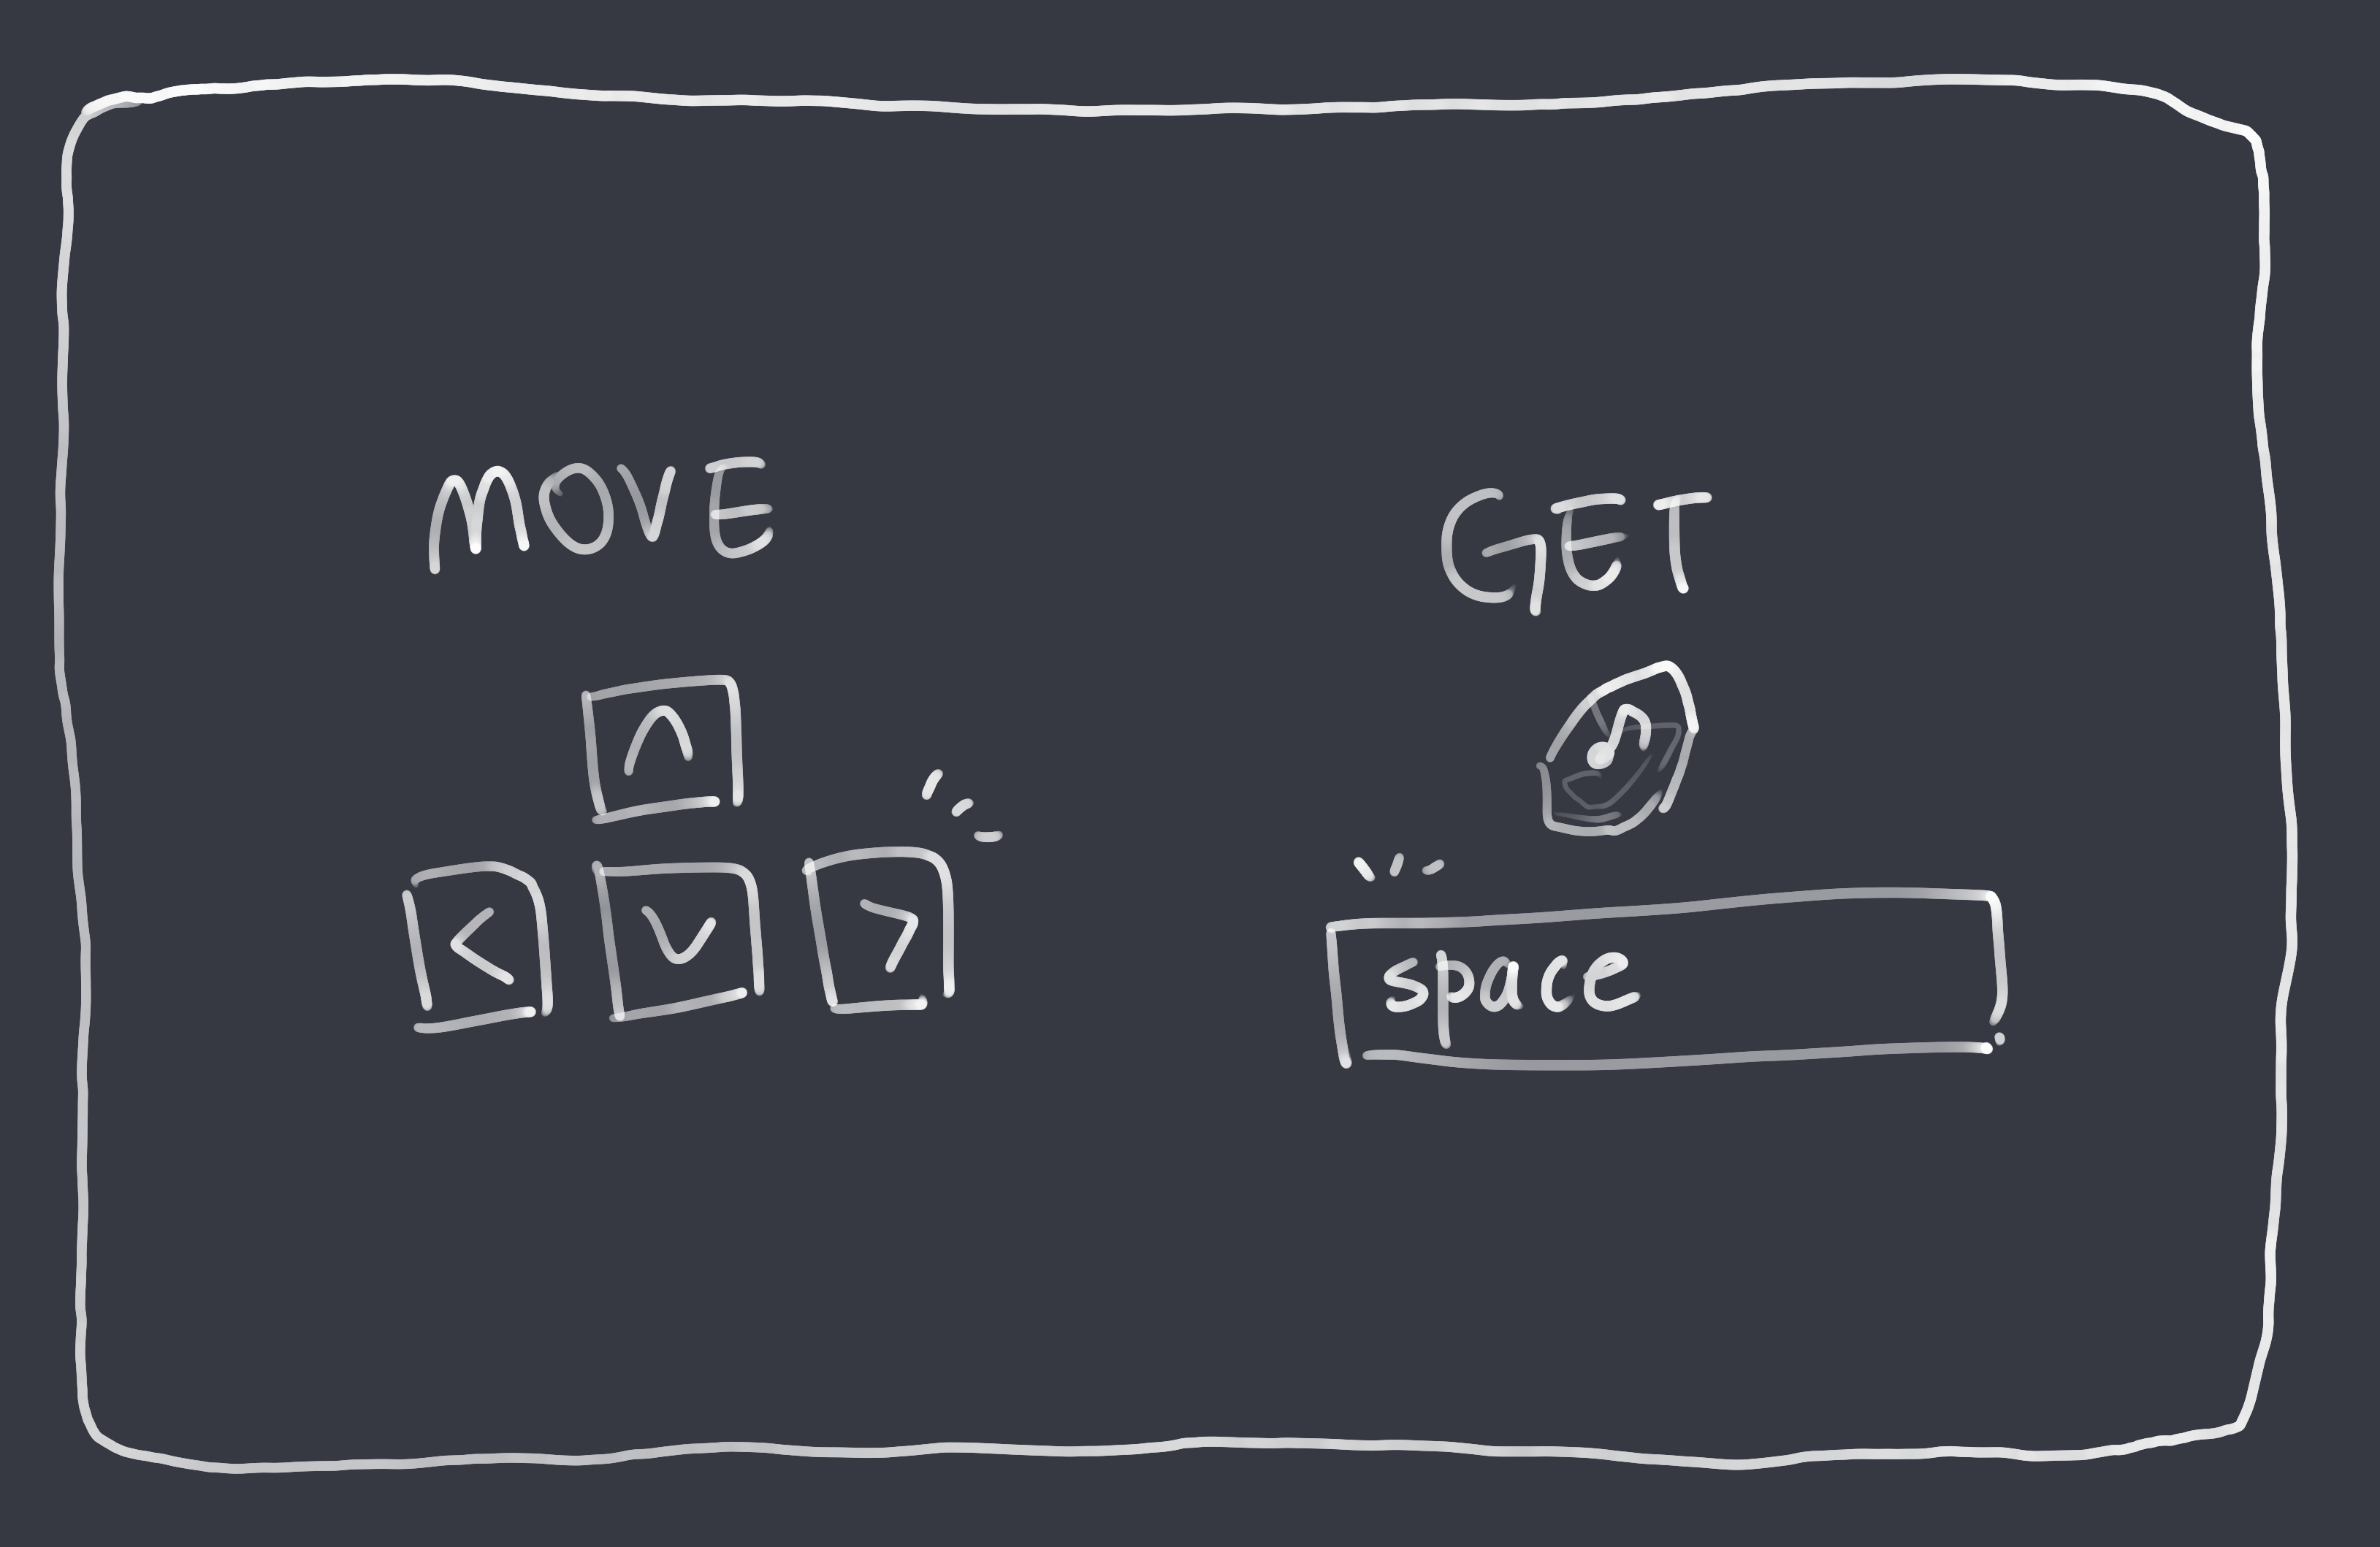 MOVE
GET
^
< v >
space